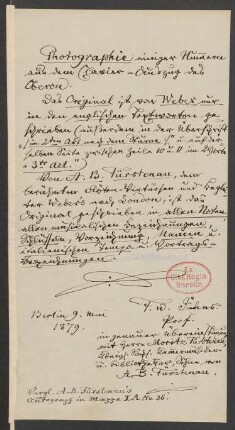 Photographie einiger Nummern
aus dem Clavier-Auszug des
Oberon.
Das Original ist von Weber nur
in den englischen Textworten ge-
schrieben (ausserdem in der Ueberschrift
"in 3ten Act nach dem" u. auf der-
selben Seite zwischen Zeile 10 u. 11 die Worte
"3ter Act."
Von A. B. Fürstenau, dem
berühmten Flöten-Virtuosen und Beglei-
ter Webers nach London, ist das
Original geschrieben in allen Noten,
allen musicalischen Bezeichnungen,
Schlüsseln, Vorzeichnung, Namen u.
italienischen Tempo- u. Vortrags-
Bezeichnungen.
Ex
Biblioth. Regia
Berolin.
F. W. Jähns
Prof.
Berlin 9. Mai
1879.
in genauer Uebereinstimmung
mit Herrn Moritz Fürstenau,
Königl. Sächs. Kammermusiker
u. Bibliothekar, Sohn von
A. B. Fürstenau.
Vergl. A. B. Fürstenau's
Autograph in Mappe I A No. 36.